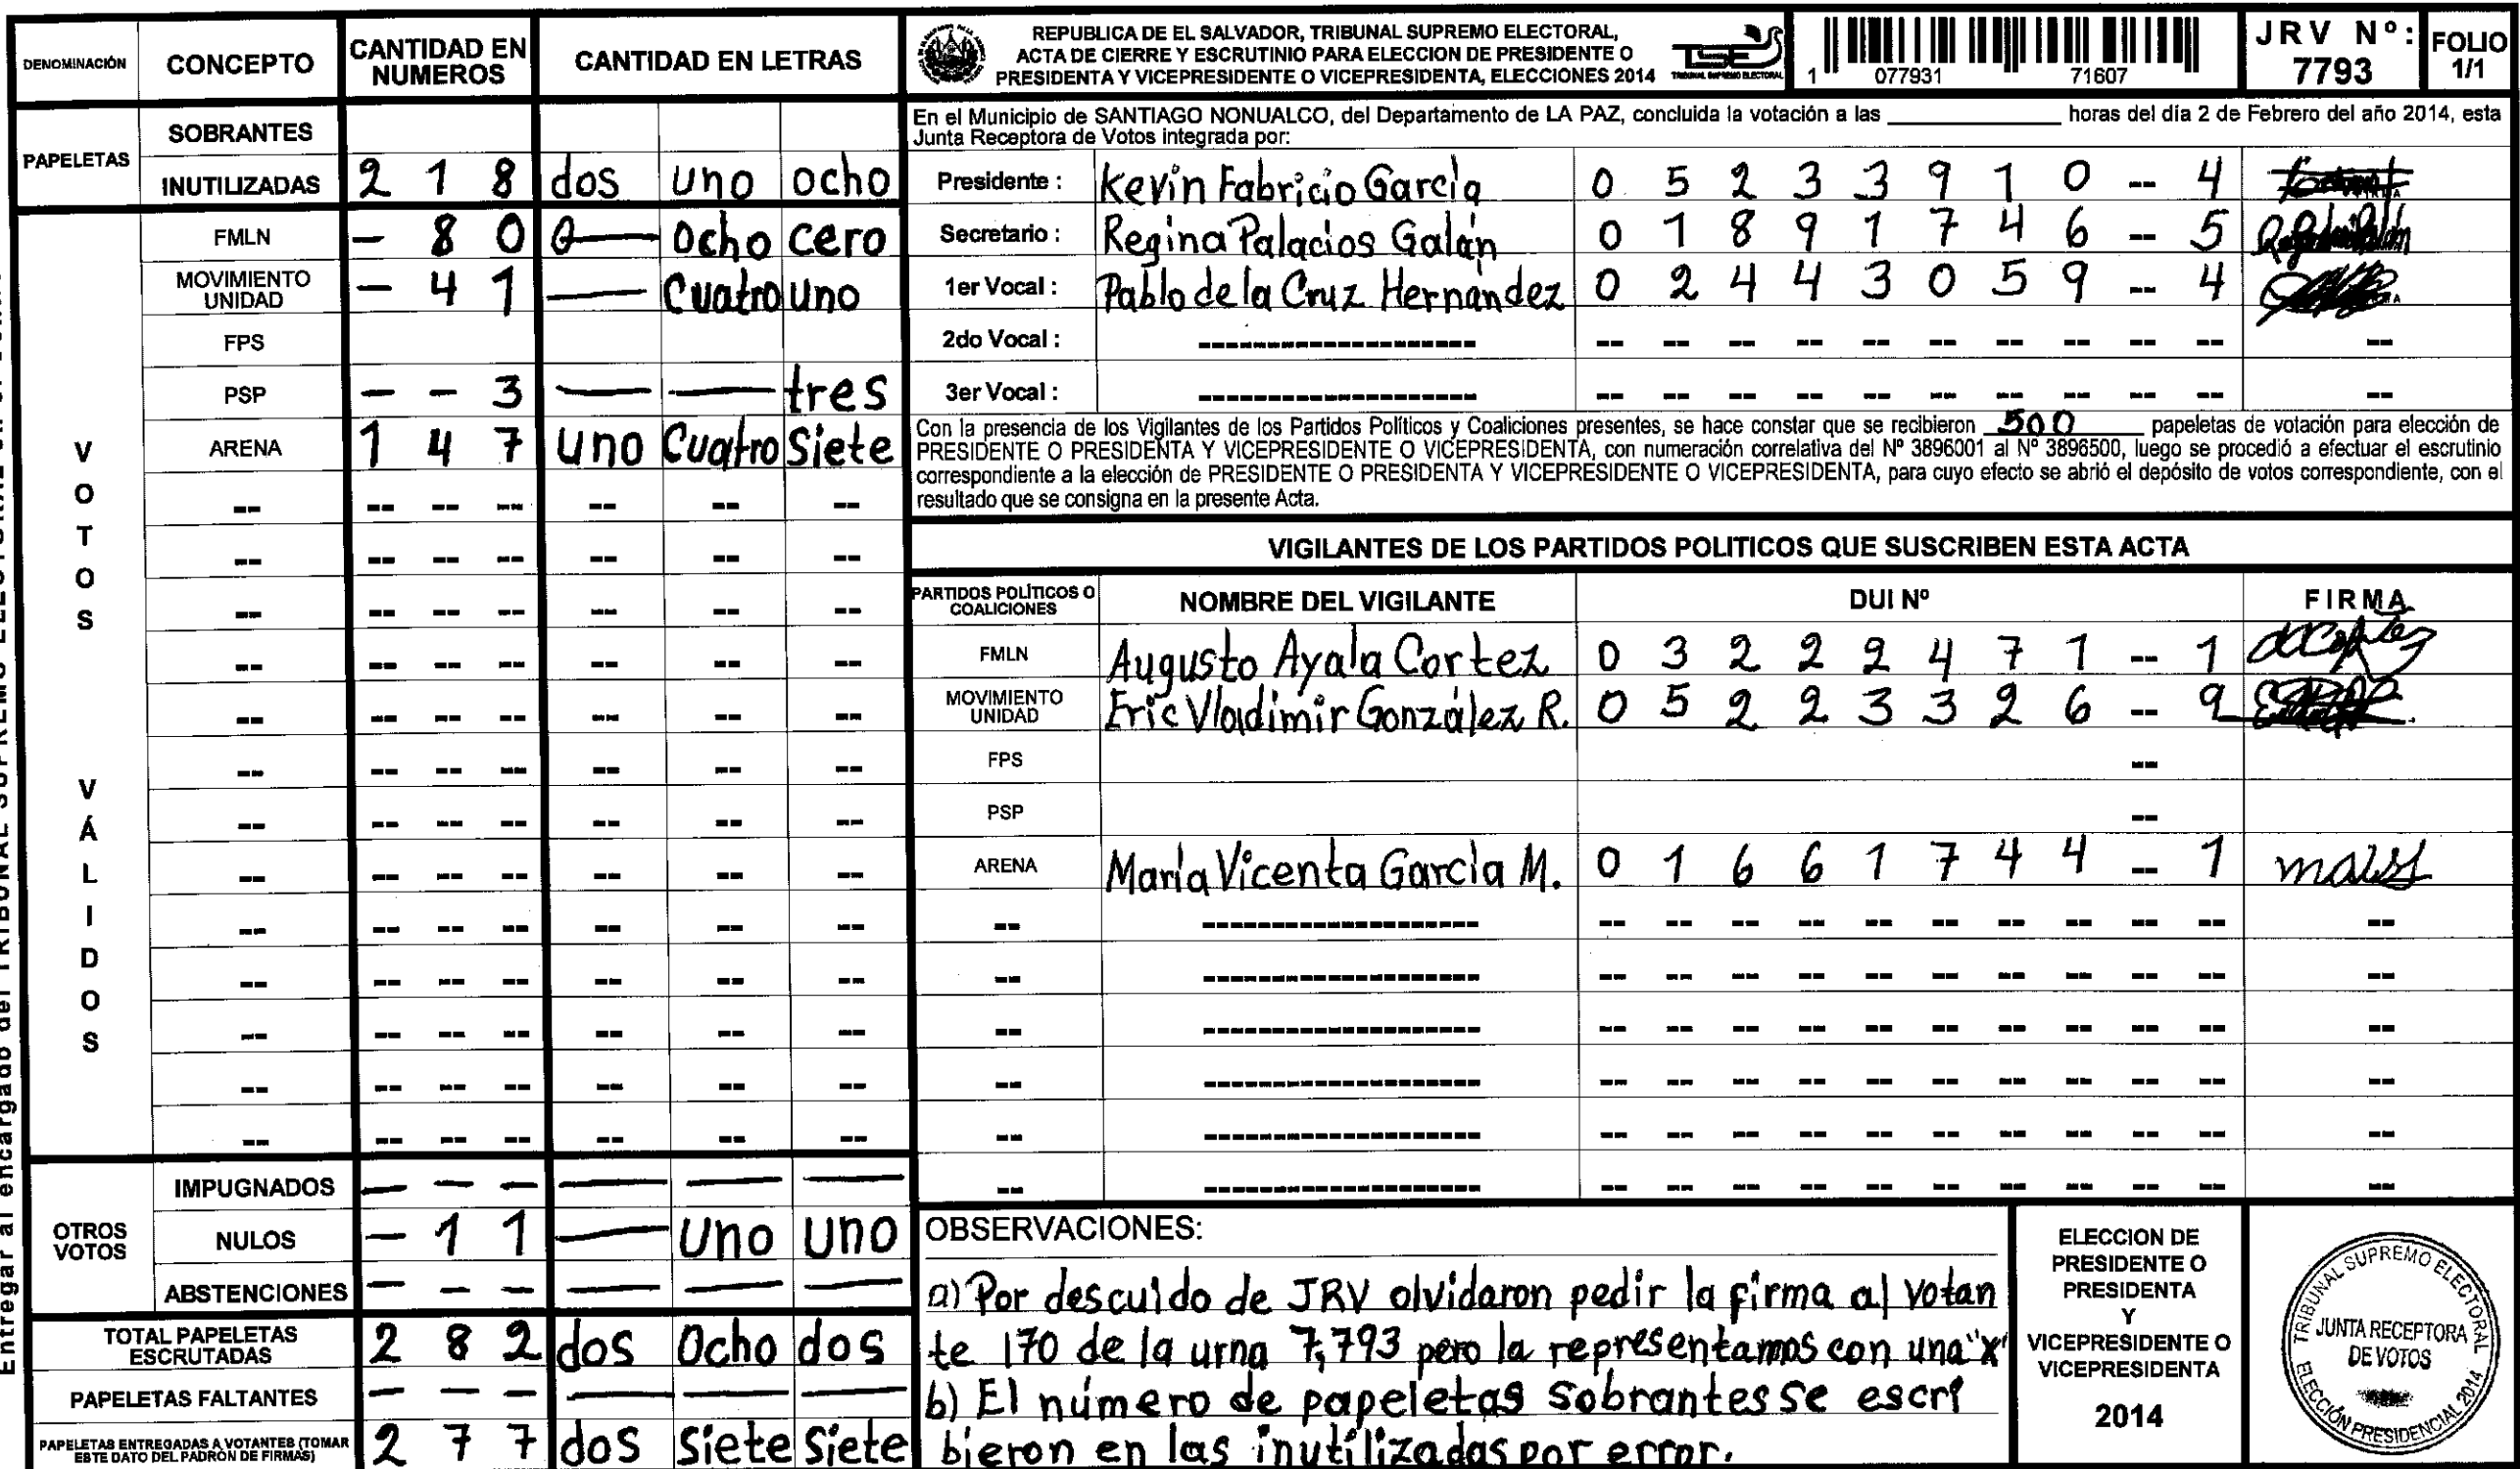 DENOMINACIÓN CONCEPTO CANTIDAD EN NUMEROS CANTIDAD EN LETRAS
PAPELETAS
SOBRANTES
INUTILIZADAS 2 1 8 dos uno ocho
VOTOS VÁLIDOS
FMLN - 8 0 — Ocho cero
MOVIMIENTO UNIDAD - 4 1 — Cuatro uno
FPS
PSP - - 3 — — tres
ARENA 1 4 7 uno Cuatro Siete
-- -- -- -- -- -- --
-- -- -- -- -- -- --
-- -- -- -- -- -- --
-- -- -- -- -- -- --
-- -- -- -- -- -- --
-- -- -- -- -- -- --
-- -- -- -- -- -- --
-- -- -- -- -- -- --
-- -- -- -- -- -- --
-- -- -- -- -- -- --
-- -- -- -- -- -- --
-- -- -- -- -- -- --
-- -- -- -- -- -- --
OTROS VOTOS
IMPUGNADOS - - - — — —
NULOS - 1 1 — Uno uno
ABSTENCIONES - - - — — —
TOTAL PAPELETAS ESCRUTADAS 2 8 2 dos Ocho dos
PAPELETAS FALTANTES - - - — — —
PAPELETAS ENTREGADAS A VOTANTES (TOMAR ESTE DATO DEL PADRÓN DE FIRMAS) 2 7 7 dos Siete Siete
REPUBLICA DE EL SALVADOR, TRIBUNAL SUPREMO ELECTORAL,
ACTA DE CIERRE Y ESCRUTINIO PARA ELECCION DE PRESIDENTE O
PRESIDENTA Y VICEPRESIDENTE O VICEPRESIDENTA, ELECCIONES 2014
TSE
TRIBUNAL SUPREMO ELECTORAL
1 077931 71607
JRV Nº: 7793
FOLIO 1/1
En el Municipio de SANTIAGO NONUALCO, del Departamento de LA PAZ, concluida la votación a las ____________ horas del día 2 de Febrero del año 2014, esta
Junta Receptora de Votos integrada por:
Presidente : Kevin Fabricio García 0 5 2 3 3 9 1 0 -- 4
Secretario : Regina Palacios Galán 0 1 8 9 1 7 4 6 -- 5
1er Vocal : Pablo de la Cruz Hernández 0 2 4 4 3 0 5 9 -- 4
2do Vocal : -------------------- -- -- -- -- -- -- -- -- -- -- --
3er Vocal : -------------------- -- -- -- -- -- -- -- -- -- -- --
Con la presencia de los Vigilantes de los Partidos Políticos y Coaliciones presentes, se hace constar que se recibieron 500 papeletas de votación para elección de
PRESIDENTE O PRESIDENTA Y VICEPRESIDENTE O VICEPRESIDENTA, con numeración correlativa del Nº 3896001 al Nº 3896500, luego se procedió a efectuar el escrutinio
correspondiente a la elección de PRESIDENTE O PRESIDENTA Y VICEPRESIDENTE O VICEPRESIDENTA, para cuyo efecto se abrió el depósito de votos correspondiente, con el
resultado que se consigna en la presente Acta.
VIGILANTES DE LOS PARTIDOS POLITICOS QUE SUSCRIBEN ESTA ACTA
PARTIDOS POLÍTICOS O COALICIONES NOMBRE DEL VIGILANTE DUI Nº FIRMA
FMLN Augusto Ayala Cortez 0 3 2 2 2 4 7 1 -- 1
MOVIMIENTO UNIDAD Eric Vladimir González R. 0 5 2 2 3 3 2 6 -- 9
FPS --
PSP --
ARENA María Vicenta García M. 0 1 6 6 1 7 4 4 -- 1
-- -------------------- -- -- -- -- -- -- -- -- -- -- --
-- -------------------- -- -- -- -- -- -- -- -- -- -- --
-- -------------------- -- -- -- -- -- -- -- -- -- -- --
-- -------------------- -- -- -- -- -- -- -- -- -- -- --
-- -------------------- -- -- -- -- -- -- -- -- -- -- --
-- -------------------- -- -- -- -- -- -- -- -- -- -- --
OBSERVACIONES:
a) Por descuido de JRV olvidaron pedir la firma al votan
te 170 de la urna 7,793 pero la representamos con una "x"
b) El número de papeletas Sobrantes se escri
bieron en las inutilizadas por error.
ELECCION DE
PRESIDENTE O
PRESIDENTA
Y
VICEPRESIDENTE O
VICEPRESIDENTA
2014
TRIBUNAL SUPREMO ELECTORAL
JUNTA RECEPTORA
DE VOTOS
ELECCIÓN PRESIDENCIAL 2014
Entregar al encargado del TRIBUNAL SUPREMO ELECTORAL